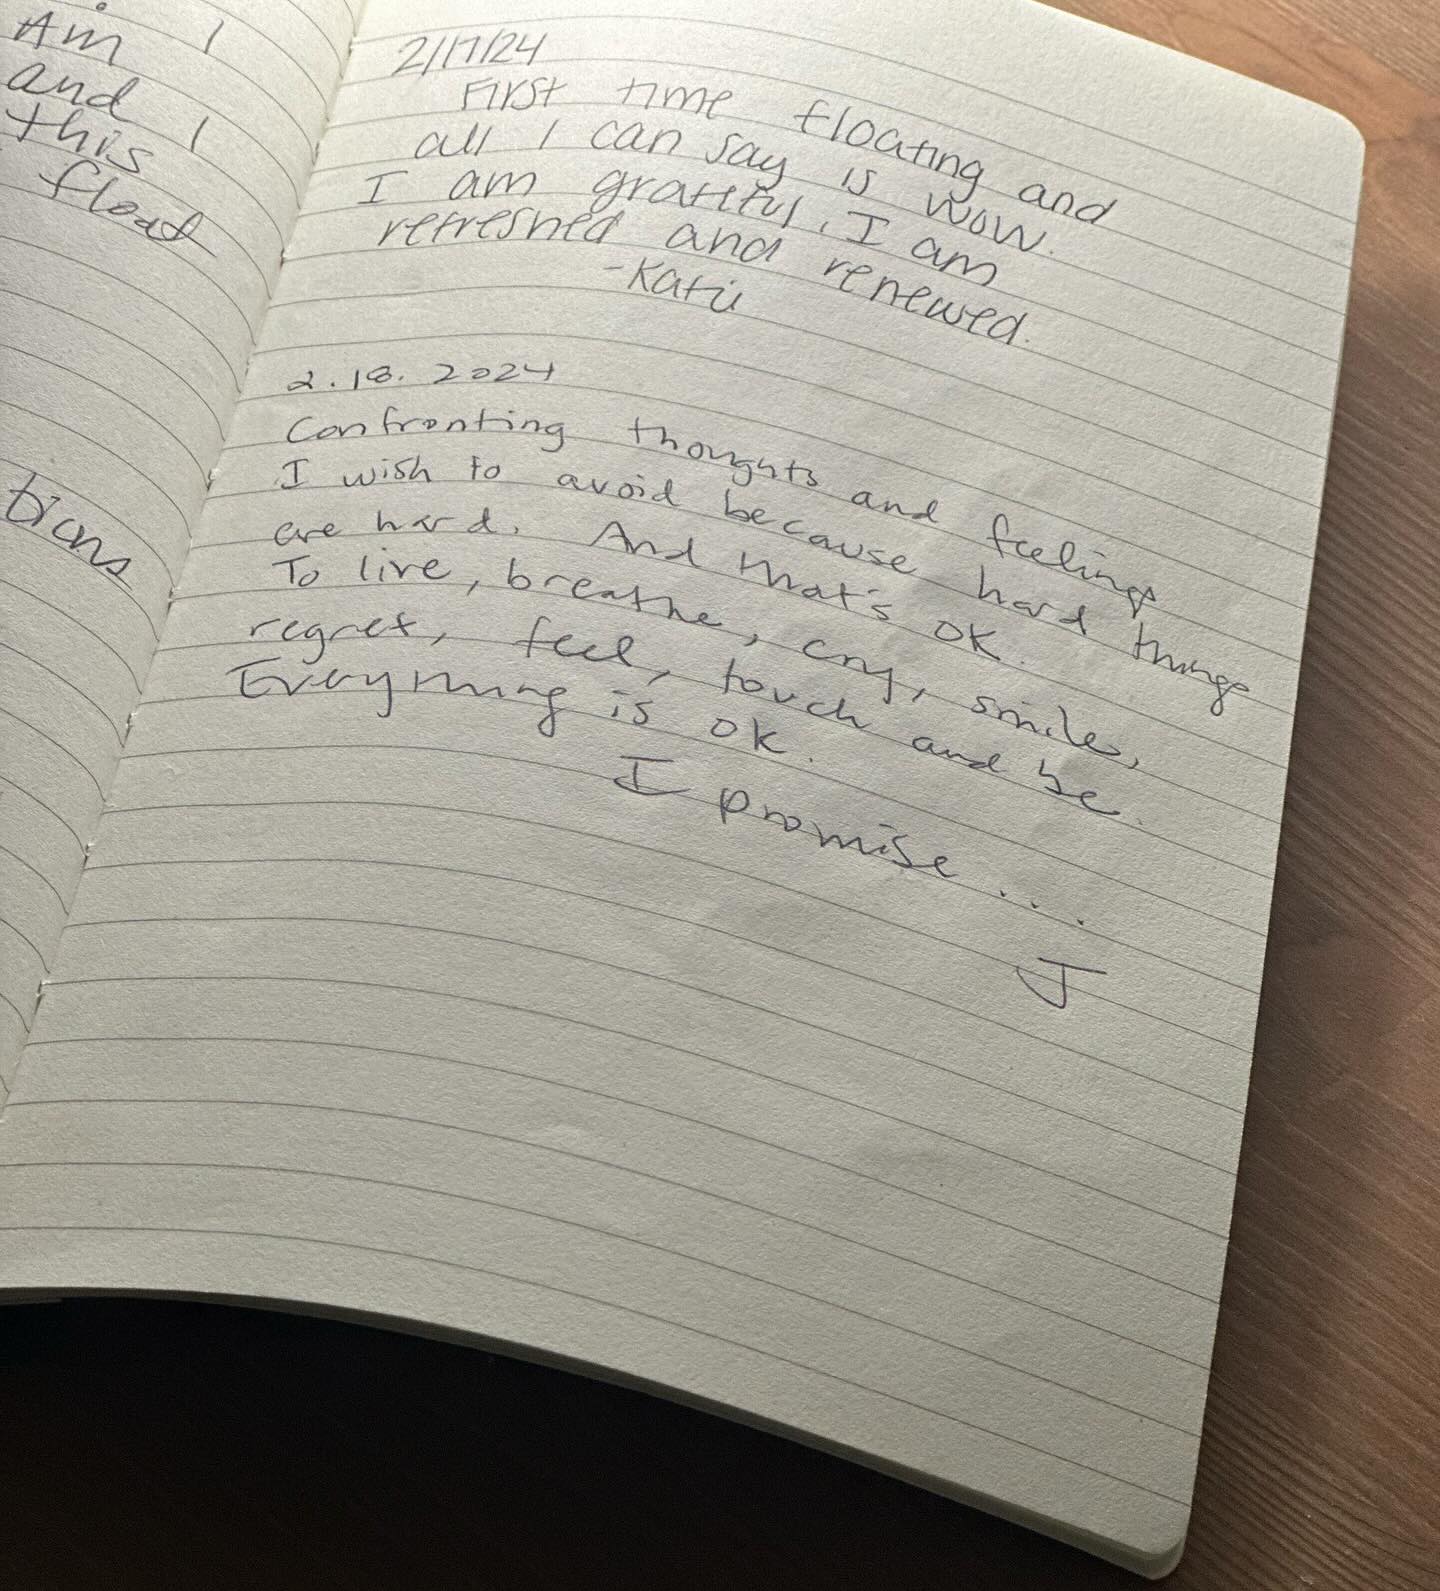 Am I
and I
this
float
tions
2/17/24
First time floating and
all I can say is wow.
I am grateful, I am
refreshed and renewed.
-Katie
2.18.2024
Confronting thoughts and feelings
I wish to avoid because hard things
are hard. And that's OK.
To live, breathe, cry, smile,
regret, feel, touch and be.
Everything is OK.
I promise...
J